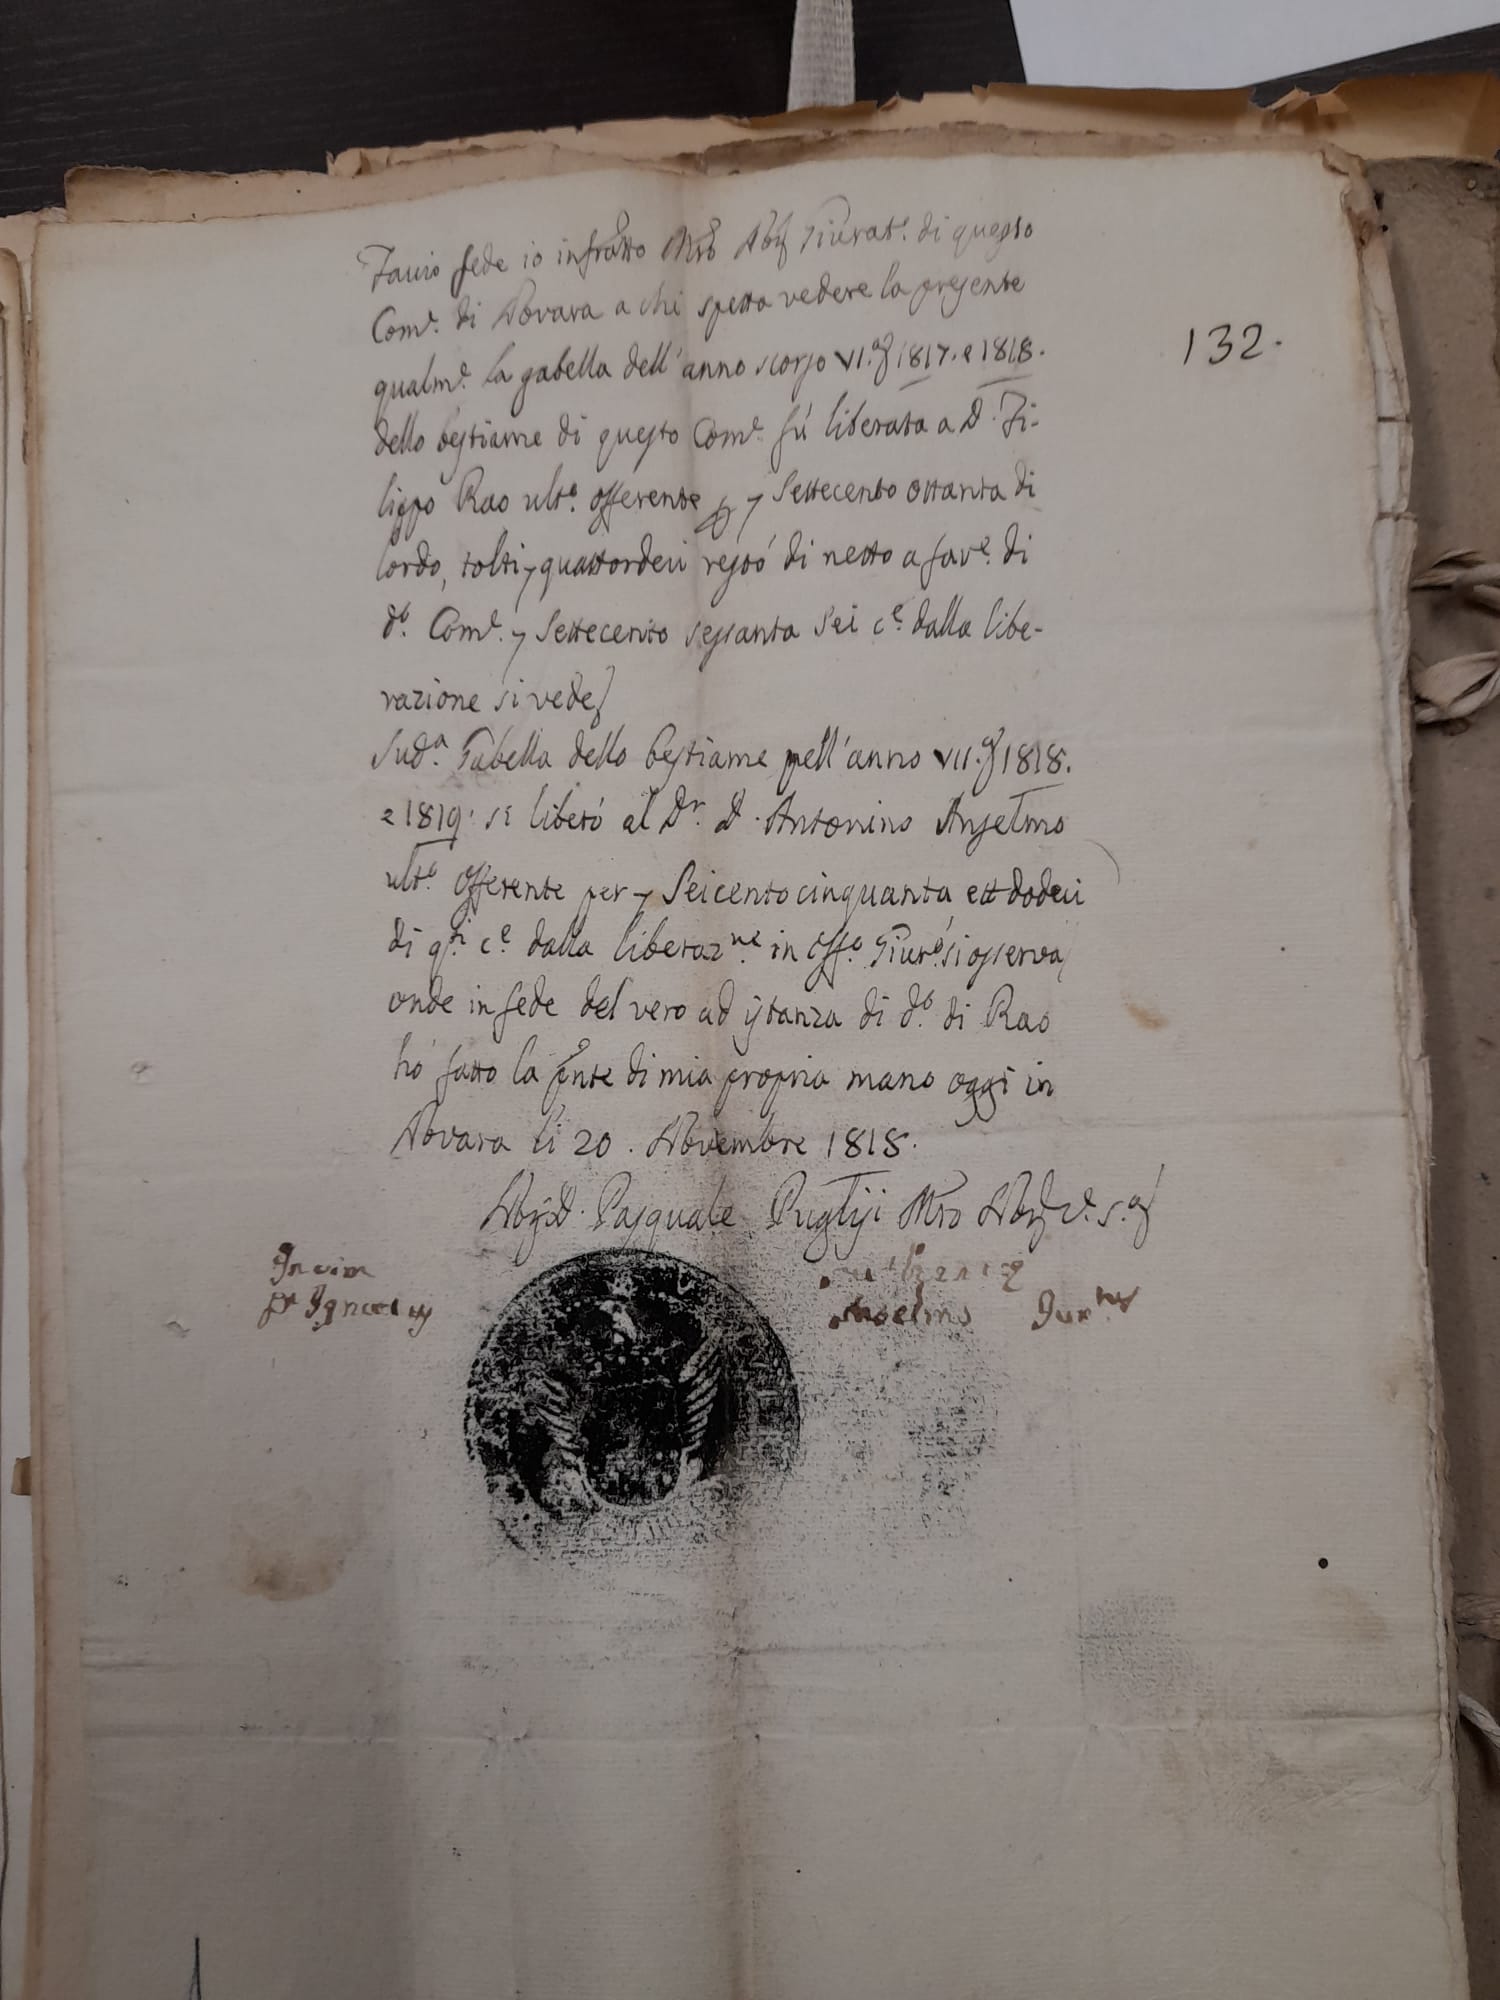 Faccio fede io infratto Mro Noty Giurat.e di questo
Com.e di Novara a chi spetta vedere la presente
132.
qualm.e la gabella dell'anno scorso VI. 1817. e 1818.
dello bestiame di questo Com.e fù liberata a D. Fi-
lippo Rao ult.o offerente Settecento ottanta di
lordo, tolti quattordeci restò di netto a fav.e di
d.o Com.e Settecento sessanta Sei c.e dalla libe-
razione si vede
Sud.a Gabella dello bestiame pell'anno VII. 1818.
e 1819. si liberò al Dr. D. Antonino Anselmo
ult.o offerente per Seicento cinquanta dodeci
di q.ti c.e dalla liberaz.ne in off.o Giur.o si osserva
onde in fede del vero ad istanza di d.o di Rao
hò fatto la pnte di mia propria mano oggi in
Novara li 20. Novembre 1818.
D. Pasquale Puglisi Mro
Anselmo